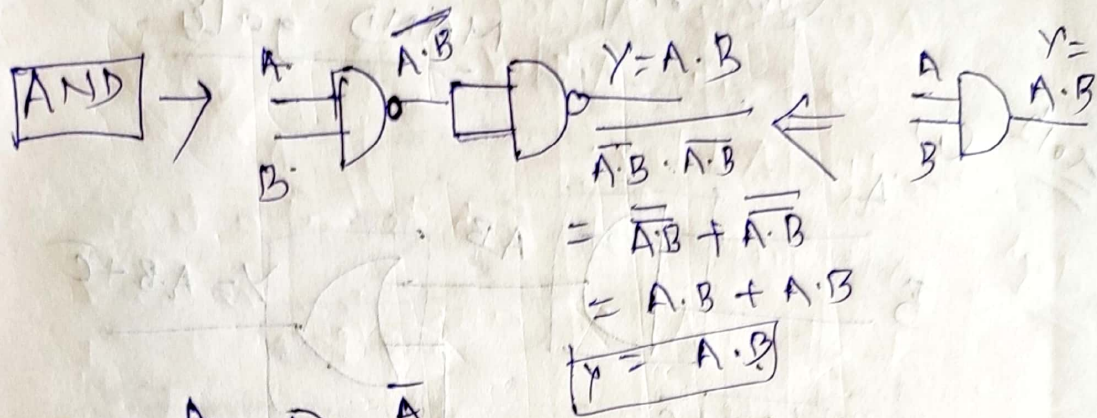 AND → A \overline{A·B} Y = A·B A Y =
B A·B
B
\overline{\overline{A·B} · \overline{A·B}}
= \overline{\overline{A·B}} + \overline{\overline{A·B}}
= A·B + A·B
Y = A·B
A \overline{A}